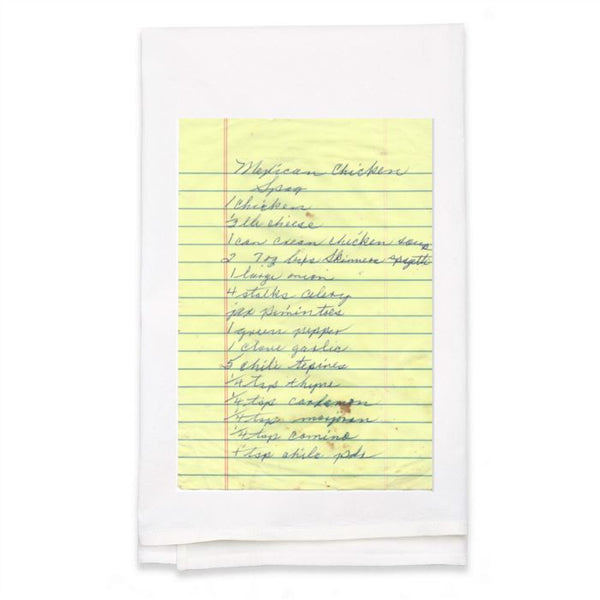 Mexican Chicken
Spag
1 chicken
½ lb cheese
1 can cream chicken soup
2 7 oz bxs Skinners spgtti
1 large onion
4 stalks celery
jar pimintoes
1 green pepper
1 clove garlic
5 chili tepines
¼ tsp thyme
¼ tsp cardamon
¼ tsp marjoram
¼ tsp comino
1 tsp chile pdr